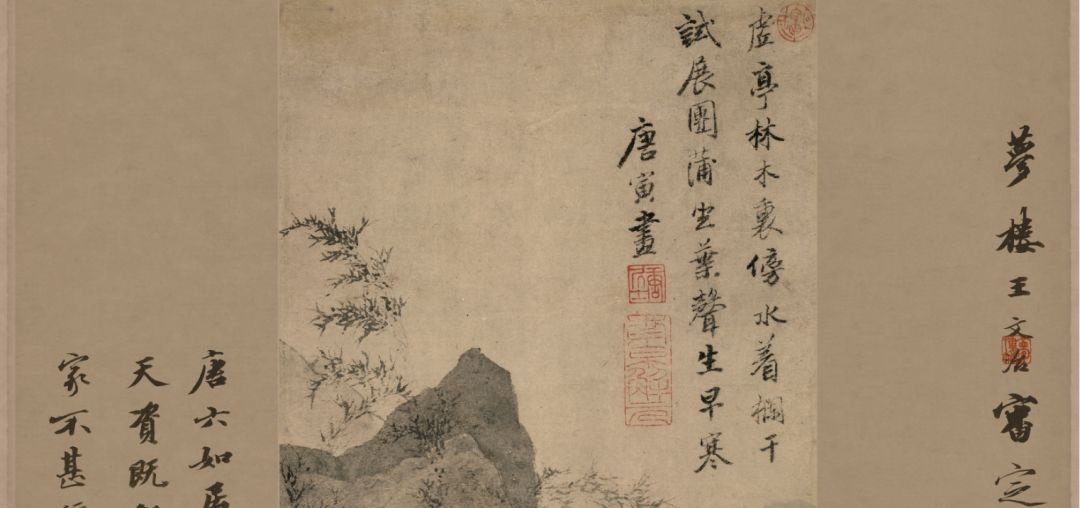 夢樓王文治審定
虛亭林木裏傍水着欄干
試展團蒲坐葉聲生早寒
唐寅畫
唐六如居
天資既
家不甚